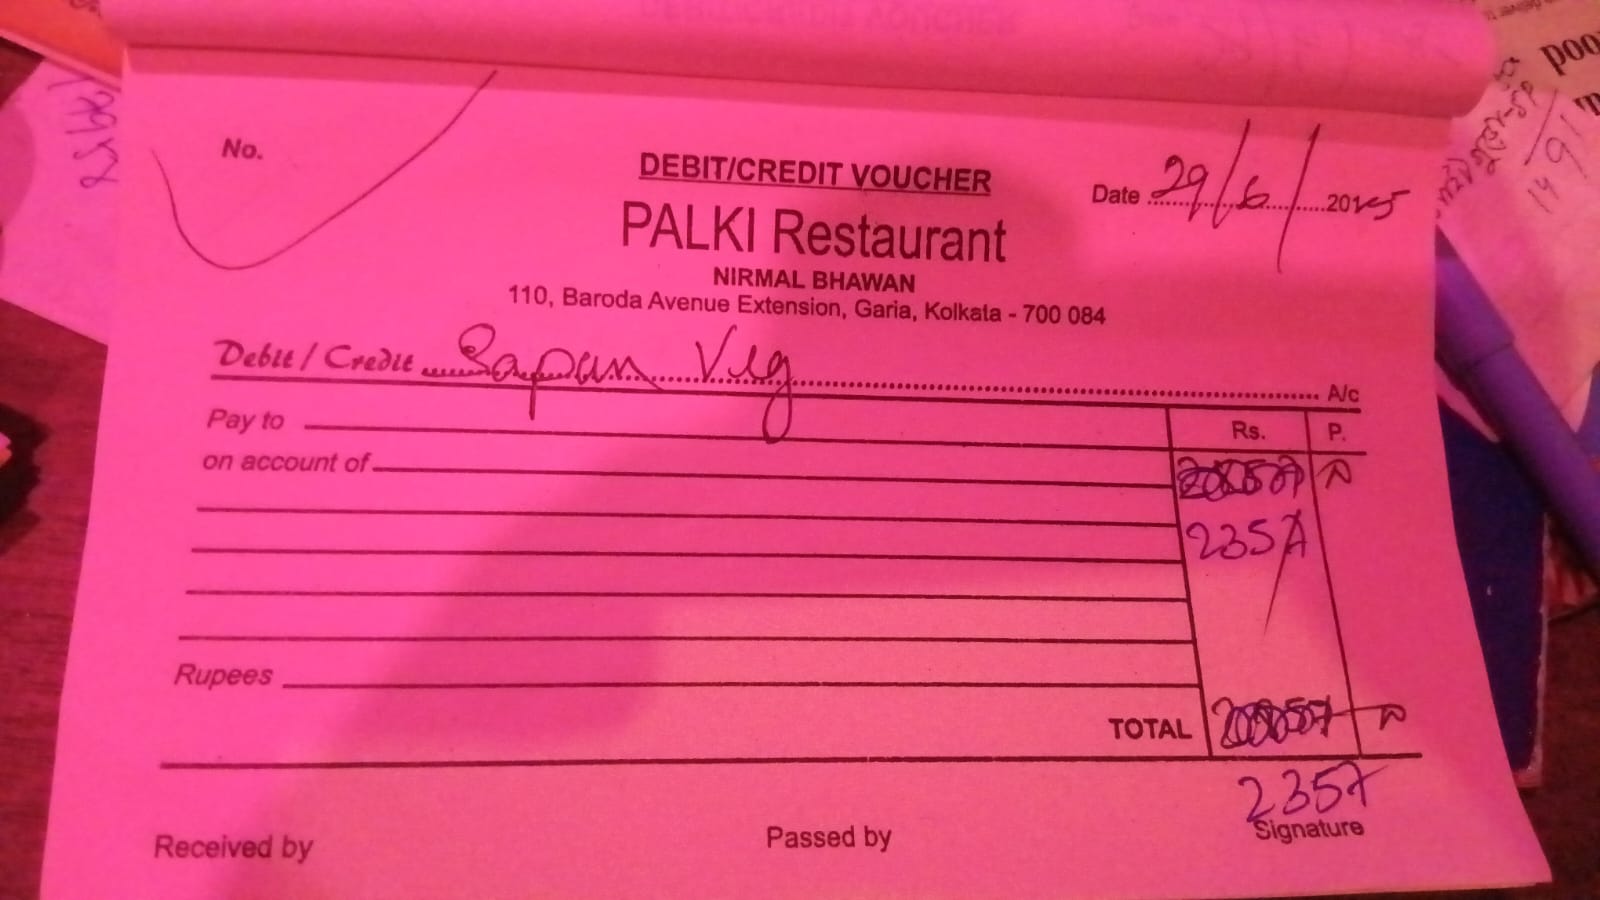 No.
DEBIT/CREDIT VOUCHER
Date 29/6/2025
PALKI Restaurant
NIRMAL BHAWAN
110, Baroda Avenue Extension, Garia, Kolkata - 700 084
Debit / Credit Sapan Veg A/c
Pay to
Rs. P.
on account of
2357
Rupees
TOTAL
2357
Signature
Received by
Passed by
poo